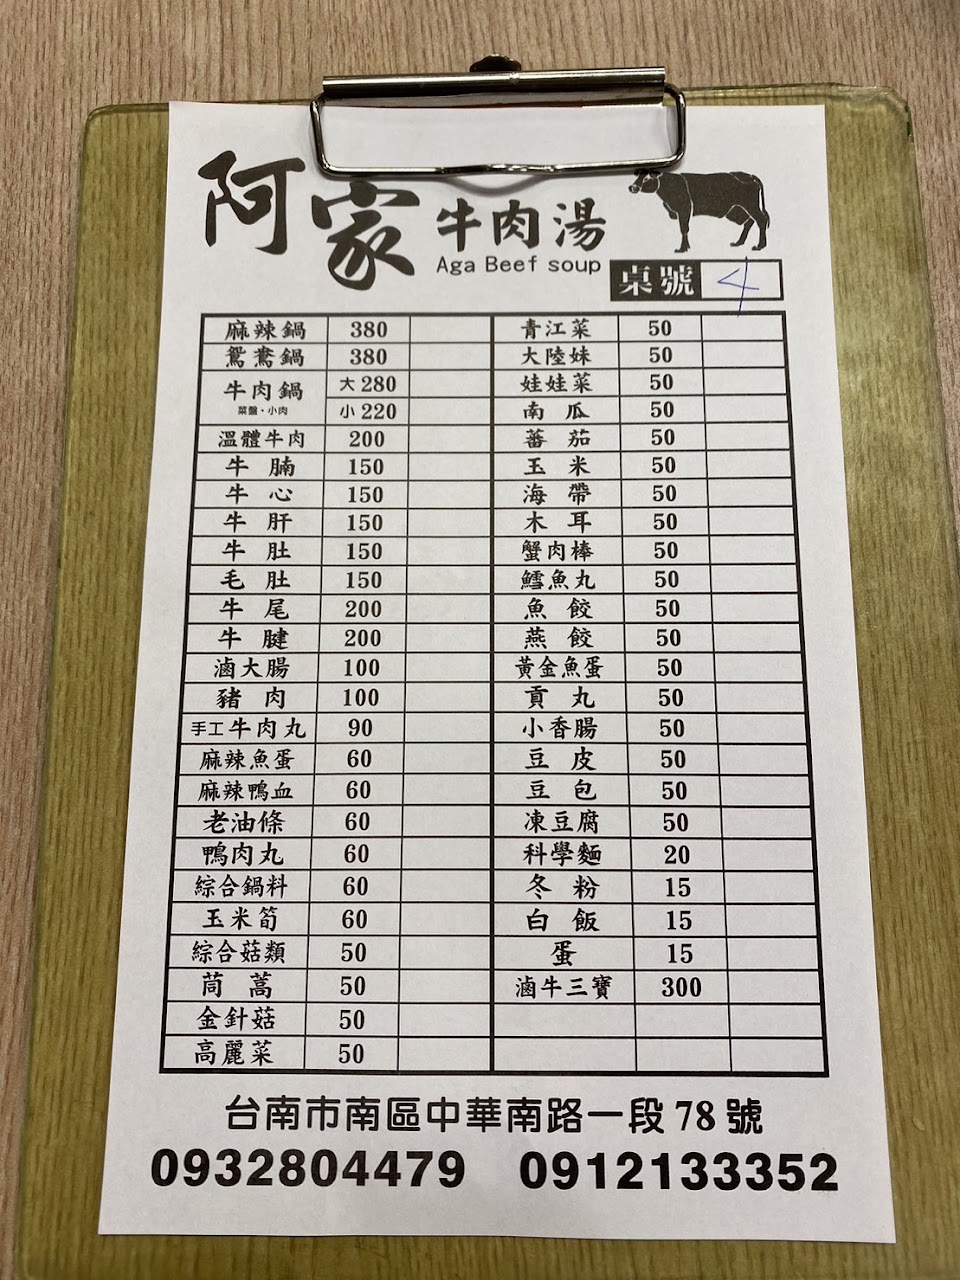 阿家牛肉湯
Aga Beef soup
桌號 4
麻辣鍋 380
鴛鴦鍋 380
牛肉鍋 大280
菜盤·小肉 小220
溫體牛肉 200
牛腩 150
牛心 150
牛肝 150
牛肚 150
毛肚 150
牛尾 200
牛腱 200
滷大腸 100
豬肉 100
手工牛肉丸 90
麻辣魚蛋 60
麻辣鴨血 60
老油條 60
鴨肉丸 60
綜合鍋料 60
玉米筍 60
綜合菇類 50
茼蒿 50
金針菇 50
高麗菜 50
青江菜 50
大陸妹 50
娃娃菜 50
南瓜 50
蕃茄 50
玉米 50
海帶 50
木耳 50
蟹肉棒 50
鱈魚丸 50
魚餃 50
燕餃 50
黃金魚蛋 50
貢丸 50
小香腸 50
豆皮 50
豆包 50
凍豆腐 50
科學麵 20
冬粉 15
白飯 15
蛋 15
滷牛三寶 300
台南市南區中華南路一段78號
0932804479 0912133352